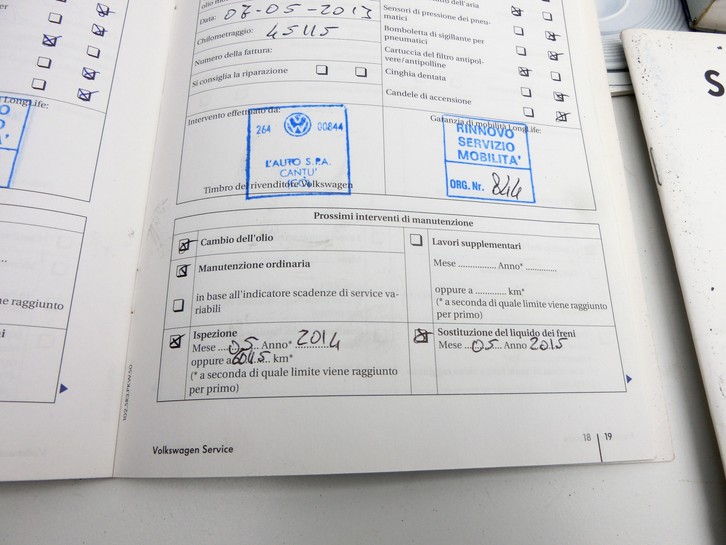 LongLife:
ne raggiunto
Data: 07-05-2013
Chilometraggio: 45115
Numero della fattura:
Si consiglia la riparazione
dell'aria
Sensori di pressione dei pneu-
matici
Bomboletta di sigillante per
pneumatici
Cartuccia del filtro antipol-
vere/antipolline
Cinghia dentata
Candele di accensione
Intervento effettuato da:
264 00844
L'AUTO S.P.A.
CANTU'
(CO)
Timbro del rivenditore Volkswagen
Garanzia di mobilità LongLife:
RINNOVO
SERVIZIO
MOBILITA'
ORG. Nr. 844
Prossimi interventi di manutenzione
Cambio dell'olio
Manutenzione ordinaria
in base all'indicatore scadenze di service va-
riabili
Ispezione
Mese ....05.... Anno* 2014
oppure a km*
(* a seconda di quale limite viene raggiunto
per primo)
Lavori supplementari
Mese ............... Anno* .............
oppure a ............ km*
(* a seconda di quale limite viene raggiunto
per primo)
Sostituzione del liquido dei freni
Mese ..05.... Anno 2015
Volkswagen Service
18 | 19
S